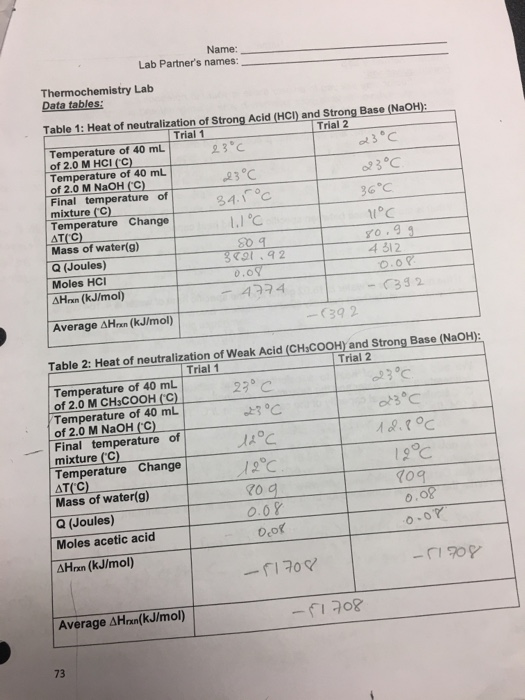 Name:
Lab Partner's names:
Thermochemistry Lab
Data tables:
Table 1: Heat of neutralization of Strong Acid (HCl) and Strong Base (NaOH):
Trial 1 Trial 2
Temperature of 40 mL of 2.0 M HCl (°C) 23°C 23°C
Temperature of 40 mL of 2.0 M NaOH (°C) 23°C 23°C
Final temperature of mixture (°C) 34.5°C 36°C
Temperature Change ΔT(°C) 1.1°C 11°C
Mass of water(g) 80 g 80.9 g
Q (Joules) 3821.92 4312
Moles HCl 0.08 0.08
ΔHrxn (kJ/mol) - 4774 - 5392
Average ΔHrxn (kJ/mol) -5392
Table 2: Heat of neutralization of Weak Acid (CH₃COOH) and Strong Base (NaOH):
Trial 1 Trial 2
Temperature of 40 mL of 2.0 M CH₃COOH (°C) 23°C 23°C
Temperature of 40 mL of 2.0 M NaOH (°C) 23°C 23°C
Final temperature of mixture (°C) 12°C 12.8°C
Temperature Change ΔT(°C) 12°C 12°C
Mass of water(g) 80 g 80g
Q (Joules) 0.08 0.08
Moles acetic acid 0.08 0.08
ΔHrxn (kJ/mol) -51708 -51708
Average ΔHrxn(kJ/mol) -51708
73